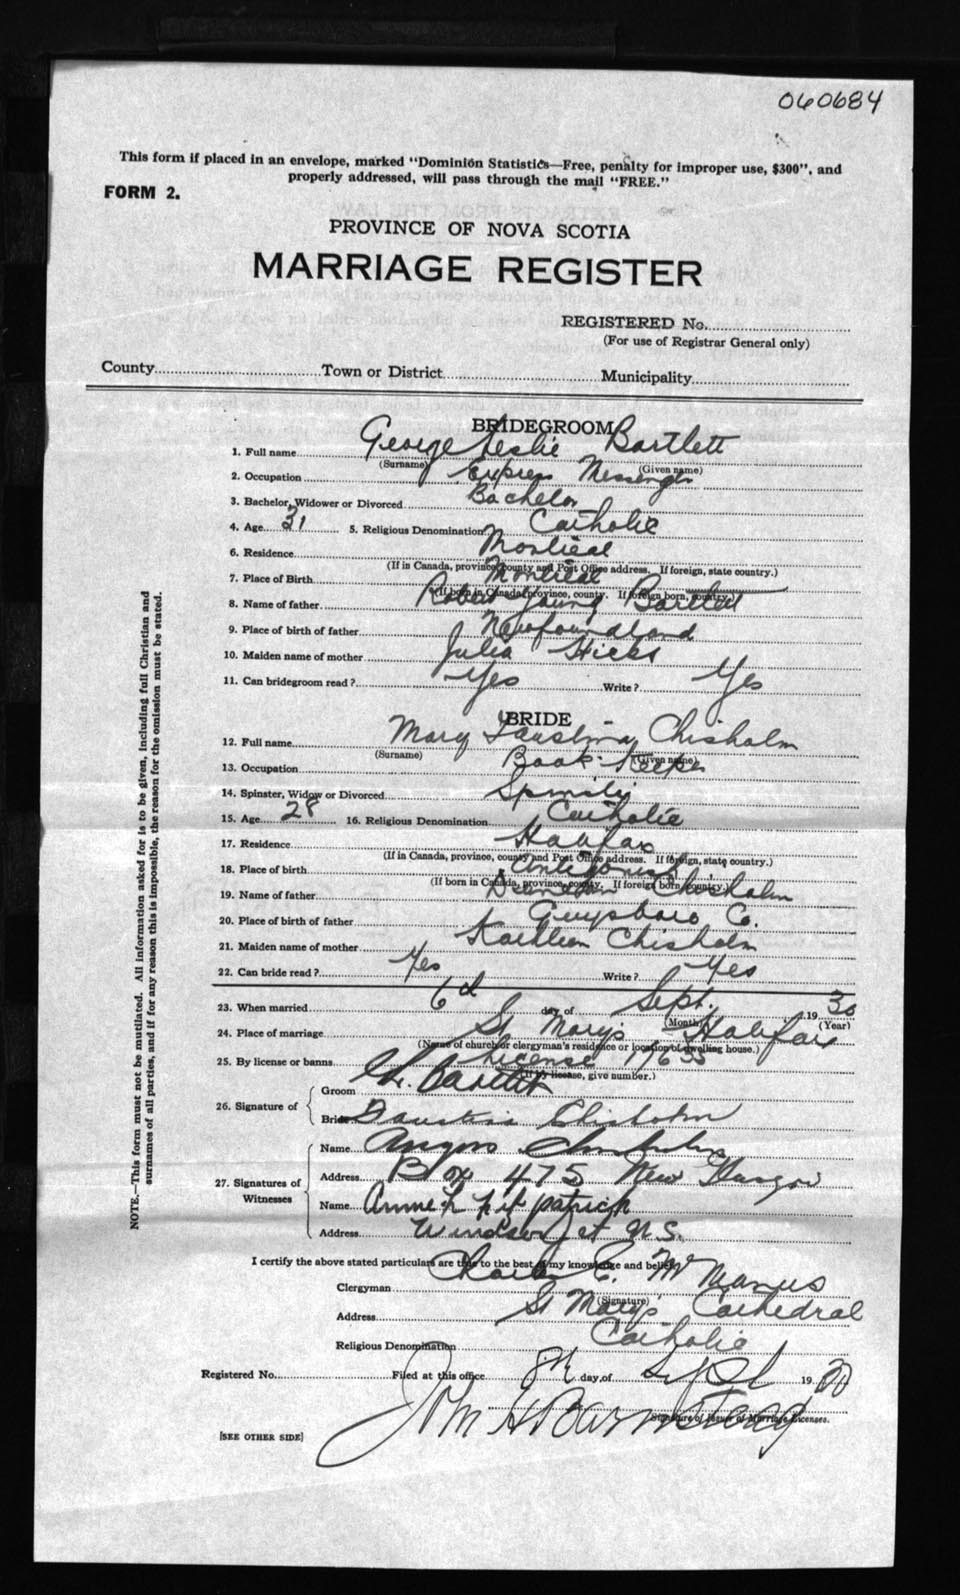 060684
This form if placed in an envelope, marked "Dominion Statistics—Free, penalty for improper use, $300", and
properly addressed, will pass through the mail "FREE."
FORM 2.
PROVINCE OF NOVA SCOTIA
MARRIAGE REGISTER
REGISTERED No.
(For use of Registrar General only)
County Town or District Municipality
BRIDEGROOM
1. Full name George Leslie Bartlett
(Surname) (Given name)
2. Occupation Express Messenger
3. Bachelor, Widower or Divorced Bachelor
4. Age 31 5. Religious Denomination Catholic
6. Residence Montreal
(If in Canada, province, county and Post Office address. If foreign, state country.)
7. Place of Birth Montreal
(If born in Canada, province, county. If foreign born, country.)
8. Name of father Robert Young Bartlett
9. Place of birth of father Newfoundland
10. Maiden name of mother Julia Hicks
11. Can bridegroom read? Yes Write? Yes
BRIDE
12. Full name Mary Faustina Chisholm
(Surname) (Given name)
13. Occupation Book-Keeper
14. Spinster, Widow or Divorced Spinster
15. Age 28 16. Religious Denomination Catholic
17. Residence Halifax
(If in Canada, province, county and Post Office address. If foreign, state country.)
18. Place of birth Antigonish
(If born in Canada, province, county. If foreign born, country.)
19. Name of father Chisholm
20. Place of birth of father Guysboro Co.
21. Maiden name of mother Kathleen Chisholm
22. Can bride read? Yes Write? Yes
23. When married 6th day of Sept. 1930
(Month) (Year)
24. Place of marriage St Mary's Halifax
(Name of church or clergyman's residence or location of dwelling house.)
25. By license or banns License
(If by license, give number.)
26. Signature of Groom Bartlett
Bride Faustina Chisholm
27. Signatures of Witnesses
Name Angus Chisholm
Address Box 475 New Glasgow
Name Anne L Fitzpatrick
Address Windsor Jct N.S.
I certify the above stated particulars are true to the best of my knowledge and belief.
Clergyman Charles C. McManus
(Signature)
Address St Mary's Cathedral
Religious Denomination Catholic
Registered No. Filed at this office 8th day of Sept 1930
John H Barnstead
Signature of Issuer of Marriage Licenses.
[SEE OTHER SIDE]
NOTE.—This form must not be mutilated. All information asked for is to be given, including full Christian and
surnames of all parties, and if for any reason this is impossible, the reason for the omission must be stated.